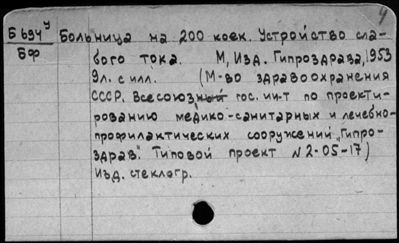 4
Б 694 у Больница на 200 коек. Устройство сла-
Бф бого тока. М, Изд. Гипроздрава, 1953
9л. с илл. (М-во здравоохранения
СССР. Всесоюзный гос. ин-т по проекти-
рованию медико-санитарных и лечебно-
профилактических сооружений „Гипро-
здрав". Типовой проект N2-05-17)
Изд. стеклогр.